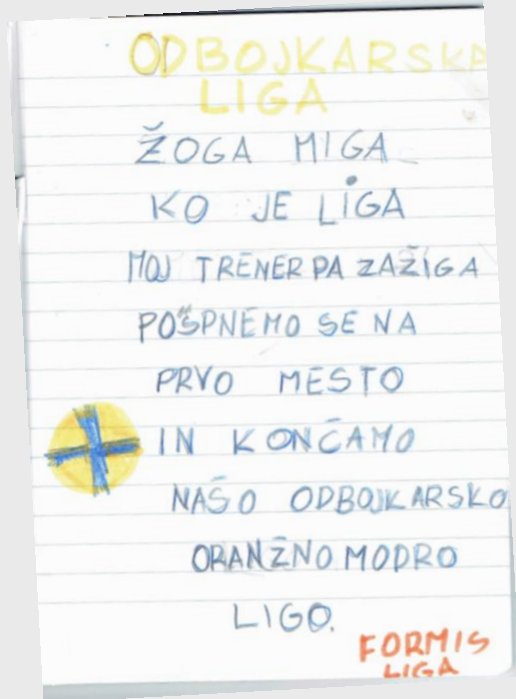 ODBOJKARSKA
LIGA
ŽOGA MIGA
KO JE LIGA
MOJ TRENER PA ZAŽIGA
POŠPNEMO SE NA
PRVO MESTO
IN KONČAMO
NAŠO ODBOJKARSKO
ORANŽNO MODRO
LIGO.
FORMIS
LIGA